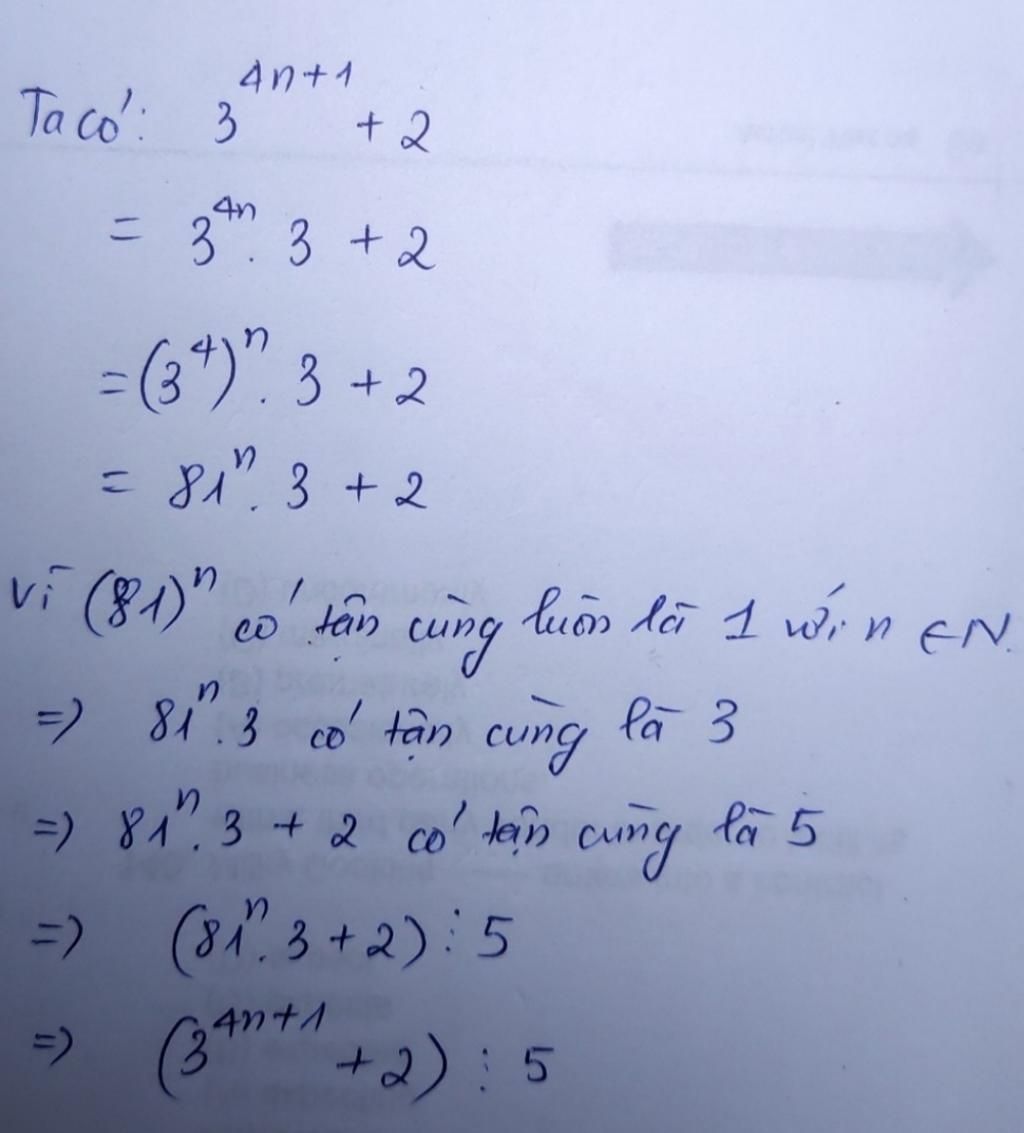 Ta có: 3^{4n+1} + 2
= 3^{4n} . 3 + 2
= (3^4)^n . 3 + 2
= 81^n . 3 + 2
Vì (81)^n có tận cùng luôn là 1 với n ∈ N.
=> 81^n . 3 có tận cùng là 3
=> 81^n . 3 + 2 có tận cùng là 5
=> (81^n . 3 + 2) ⋮ 5
=> (3^{4n+1} + 2) ⋮ 5